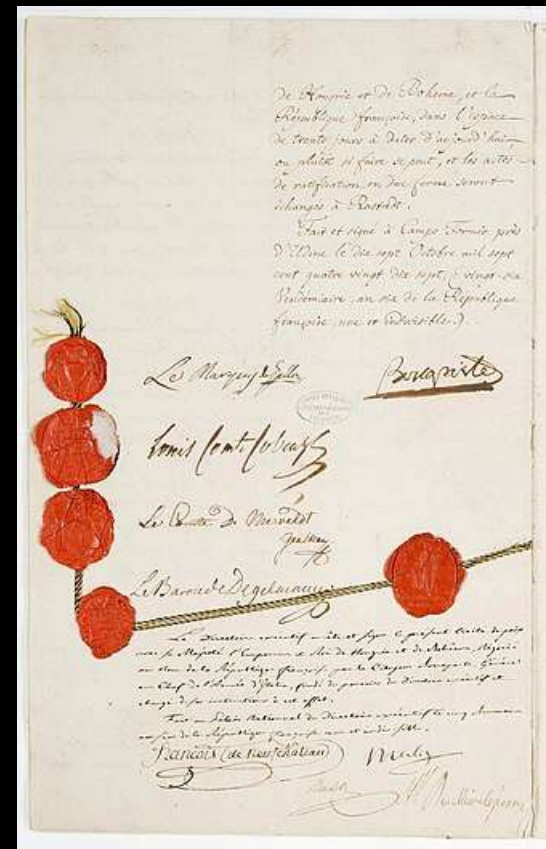 de Hongrie et de Boheme, et la
République française, dans l'espace
de trente jours à dater d'aujourd'hui
ou plutôt si faire se peut, et les actes
de ratification en due forme seront
échangés à Rastadt.
Fait et signé à Campo Formio près
d'Udine le dix sept Octobre mil sept
cent quatre vingt dix sept, (vingt-six
Vendemiaire, an six de la République
française, une et indivisible.)
Le Marquis de Gallo
Bonaparte
Louis Comte Cobenzl
Le Comte De Merveldt
Le Baron de Degelmann
Le Directoire exécutif arrête et signe le présent traité de paix
avec Sa Majesté l'Empereur et Roi de Hongrie et de Bohême, négocié
au nom de la République française, par le Citoyen Bonaparte, Général
en Chef de l'Armée d'Italie, fondé de pouvoirs du Directoire exécutif et
chargé de ses instructions à cet effet.
Fait au Palais National du Directoire exécutif le cinq Brumaire
an six de la République française une et indivisible.
François (de Neufchateau)
Merlin